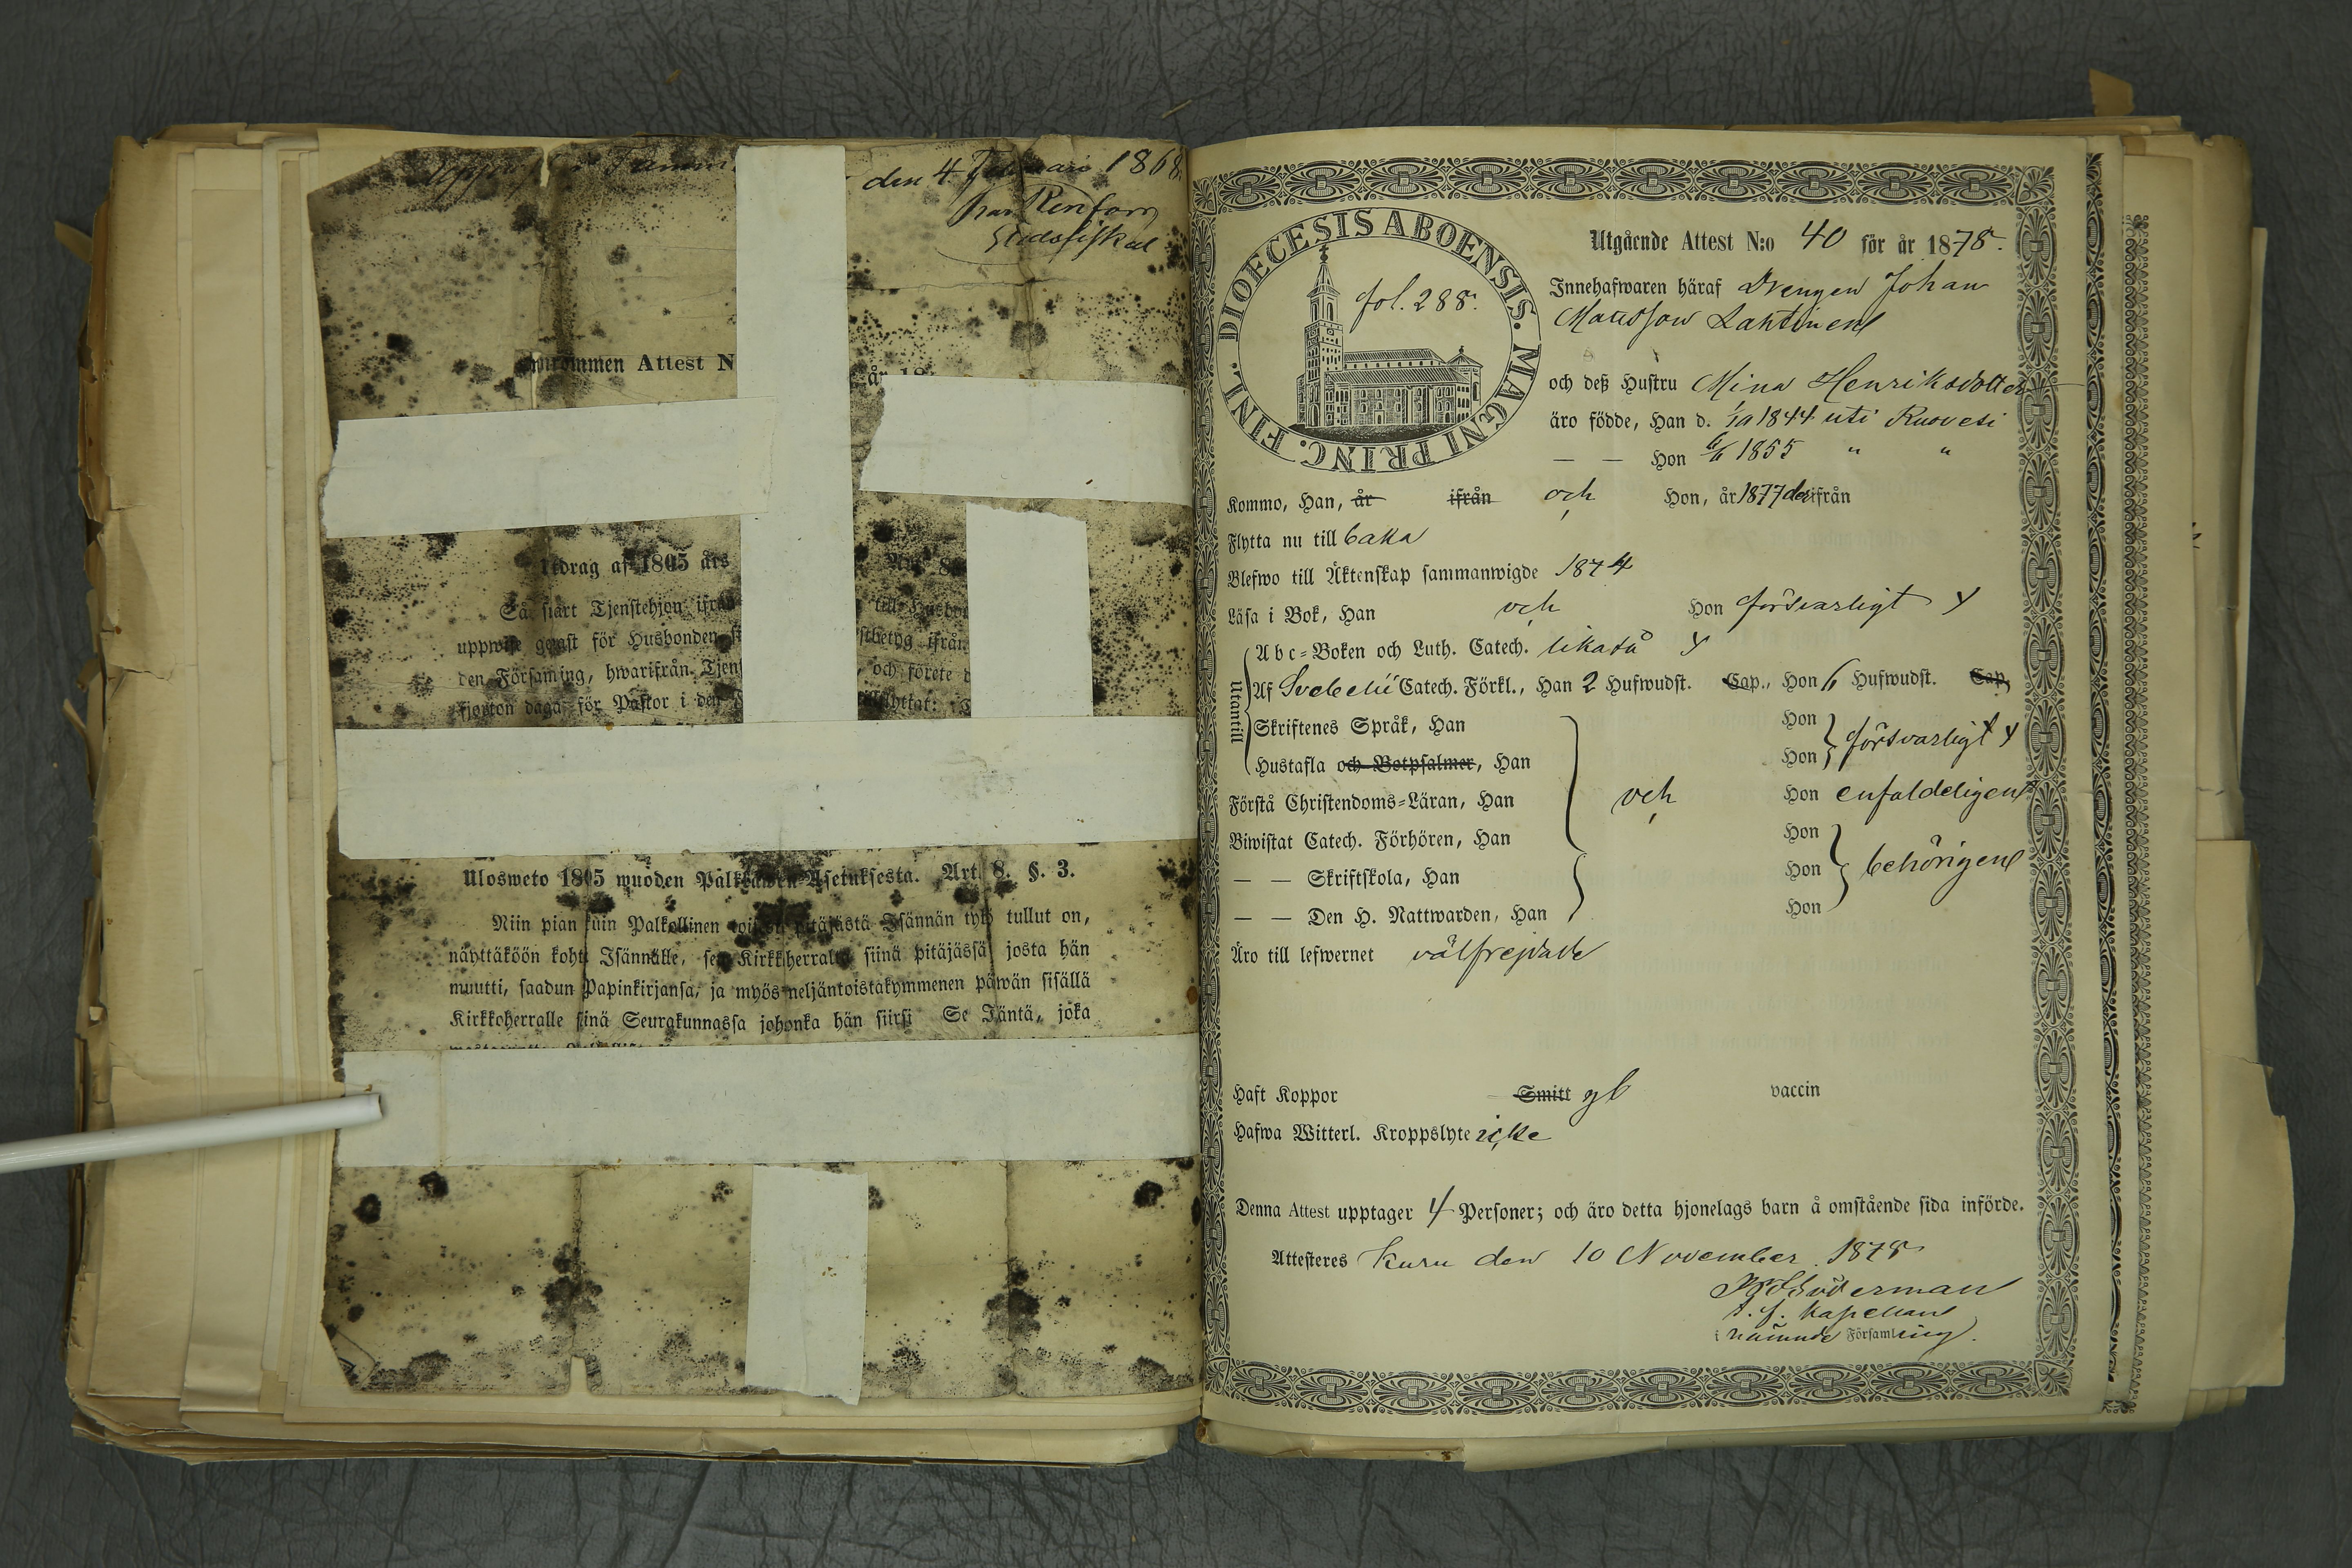 den 4 Februari 1868.
Stadsfiskal
Inkommen Attest N
år 18
Utdrag af 1805 års
Art. 8
Så snart Tjenstehjon ifrån
till Husbon
uppwise genast för Husbonden
stbetyg ifrån
den Församling, hwarifrån Tjenst
och förete
fjorton dagar för Pastor i den
Ulosweto 1805 wuoden Palkkawäen-Asetuksesta. Art. 8. §. 3.
Niin pian kuin Palkollinen toisesta pitäjästä Isännän tykö tullut on,
näyttäköön kohta Isännälle, sen Kirkkoherralta siinä pitäjässä josta hän
muutti, saadun Papinkirjansa, ja myös neljäntoistakymmenen päwän sisällä
Kirkkoherralle siinä Seurakunnassa johonka hän siirsi Se Jäntä, joka
DIOECESIS ABOENSIS. MAGNI PRINC. FINL.
fol. 288.
Utgående Attest N:o 40 för år 1878.
Innehafwaren häraf Drengen Johan
Matsson Lahtinen
och deß Hustru Mina Henriksdotter
äro födde, Han d. 1/10 1844 uti Ruovesi
— — Hon 6/6 1855 " "
Kommo, Han, år ifrån och Hon, år 1877 derifrån
Flytta nu tillbaka
Blefwo till Äktenskap sammanwigde 1874
Läsa i Bok, Han och Hon försvarligt
Utantill
Abc-Boken och Luth. Catech. likaså
Af Svebelii Catech. Förkl., Han 2 Hufwudst. Cap., Hon 6 Hufwudst. Cap,
Skriftenes Språk, Han Hon
Hustafla och Botpsalmer, Han Hon försvarligt
Förstå Christendoms-Läran, Han och Hon enfaldeligen
Biwistat Catech. Förhören, Han Hon
— — Skriftskola, Han Hon behörigen
— — Den H. Nattwarden, Han Hon
Äro till lefwernet välfrejdade
Haft Koppor Smitt gl vaccin
Hafwa Witterl. Kroppslyte icke
Denna Attest upptager 4 Personer; och äro detta hjonelags barn å omstående sida införde.
Attesteres Kuru den 10 November 1878
Söderman
t. f. Kapellan
i nämnde Församling.